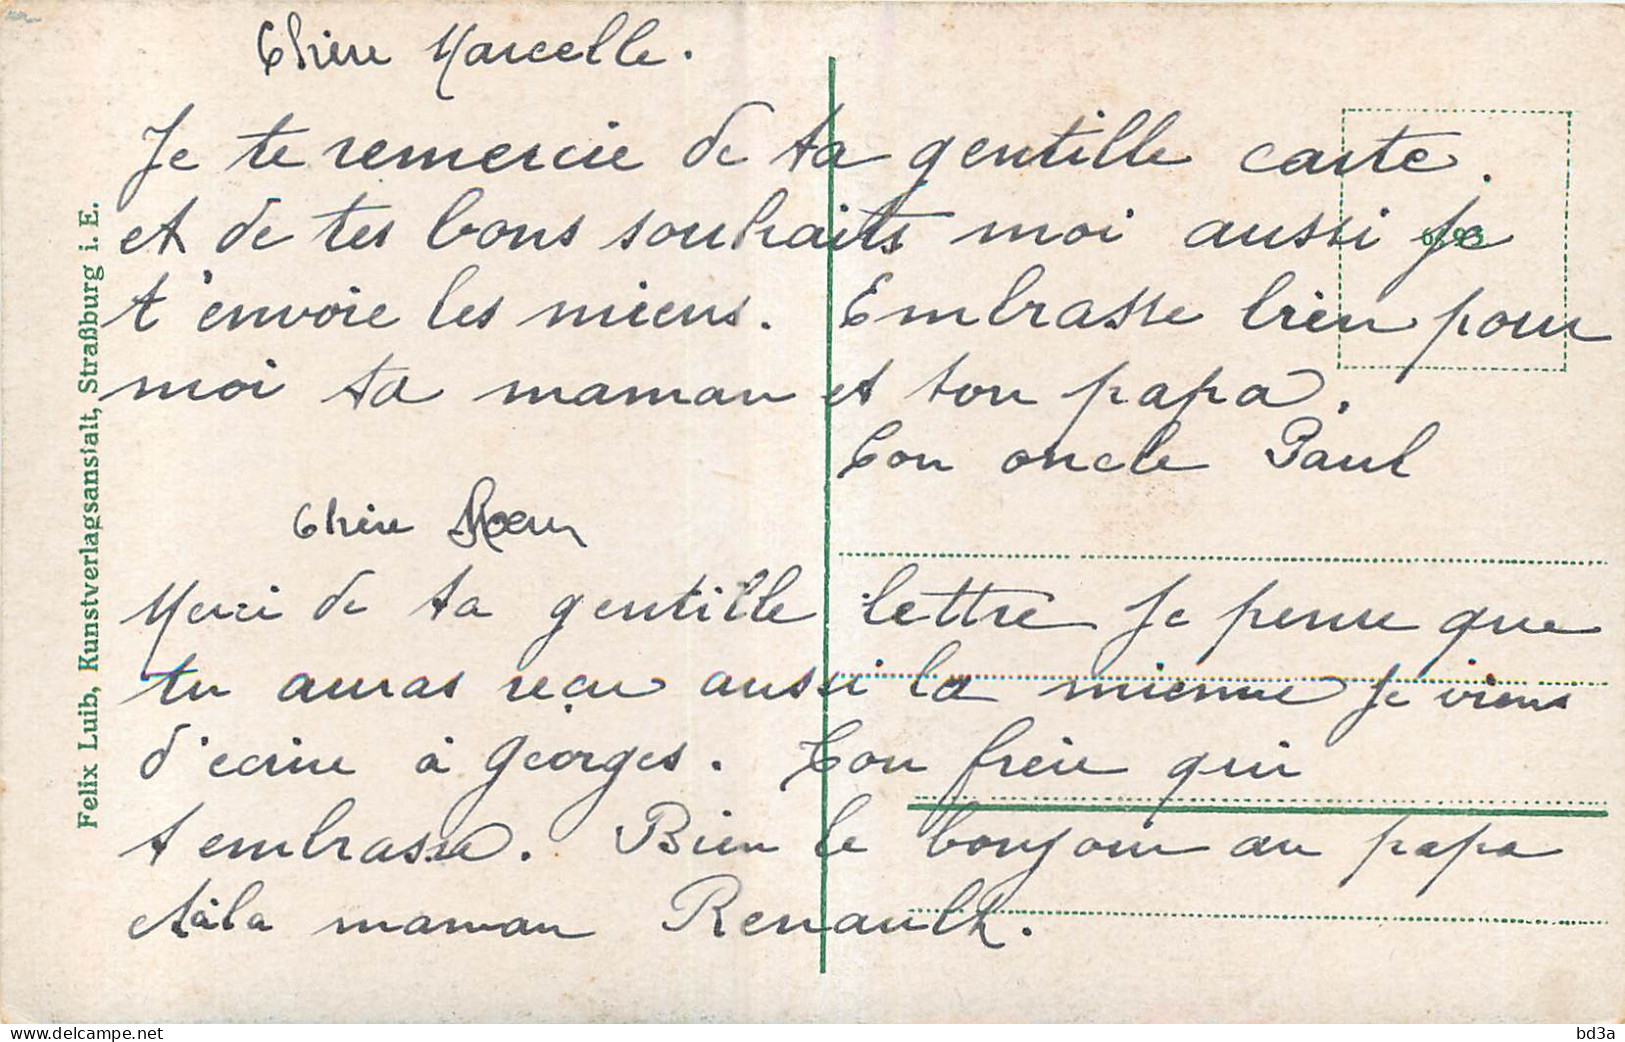 Chère Marcelle.
Je te remercie de ta gentille carte.
et de tes bons souhaits moi aussi je
t'envoie les miens. Embrasse bien pour
moi ta maman et ton papa.
Ton oncle Paul
Chère Sœur
Merci de ta gentille lettre Je pense que
tu auras reçu aussi la mienne Je viens
d'ecrire à Georges. Ton frère qui
t embrasse. Bien le bonjour au papa
et à la maman Renault.
Felix Luib, Kunstverlagsanstalt, Straßburg i. E.
bd3a